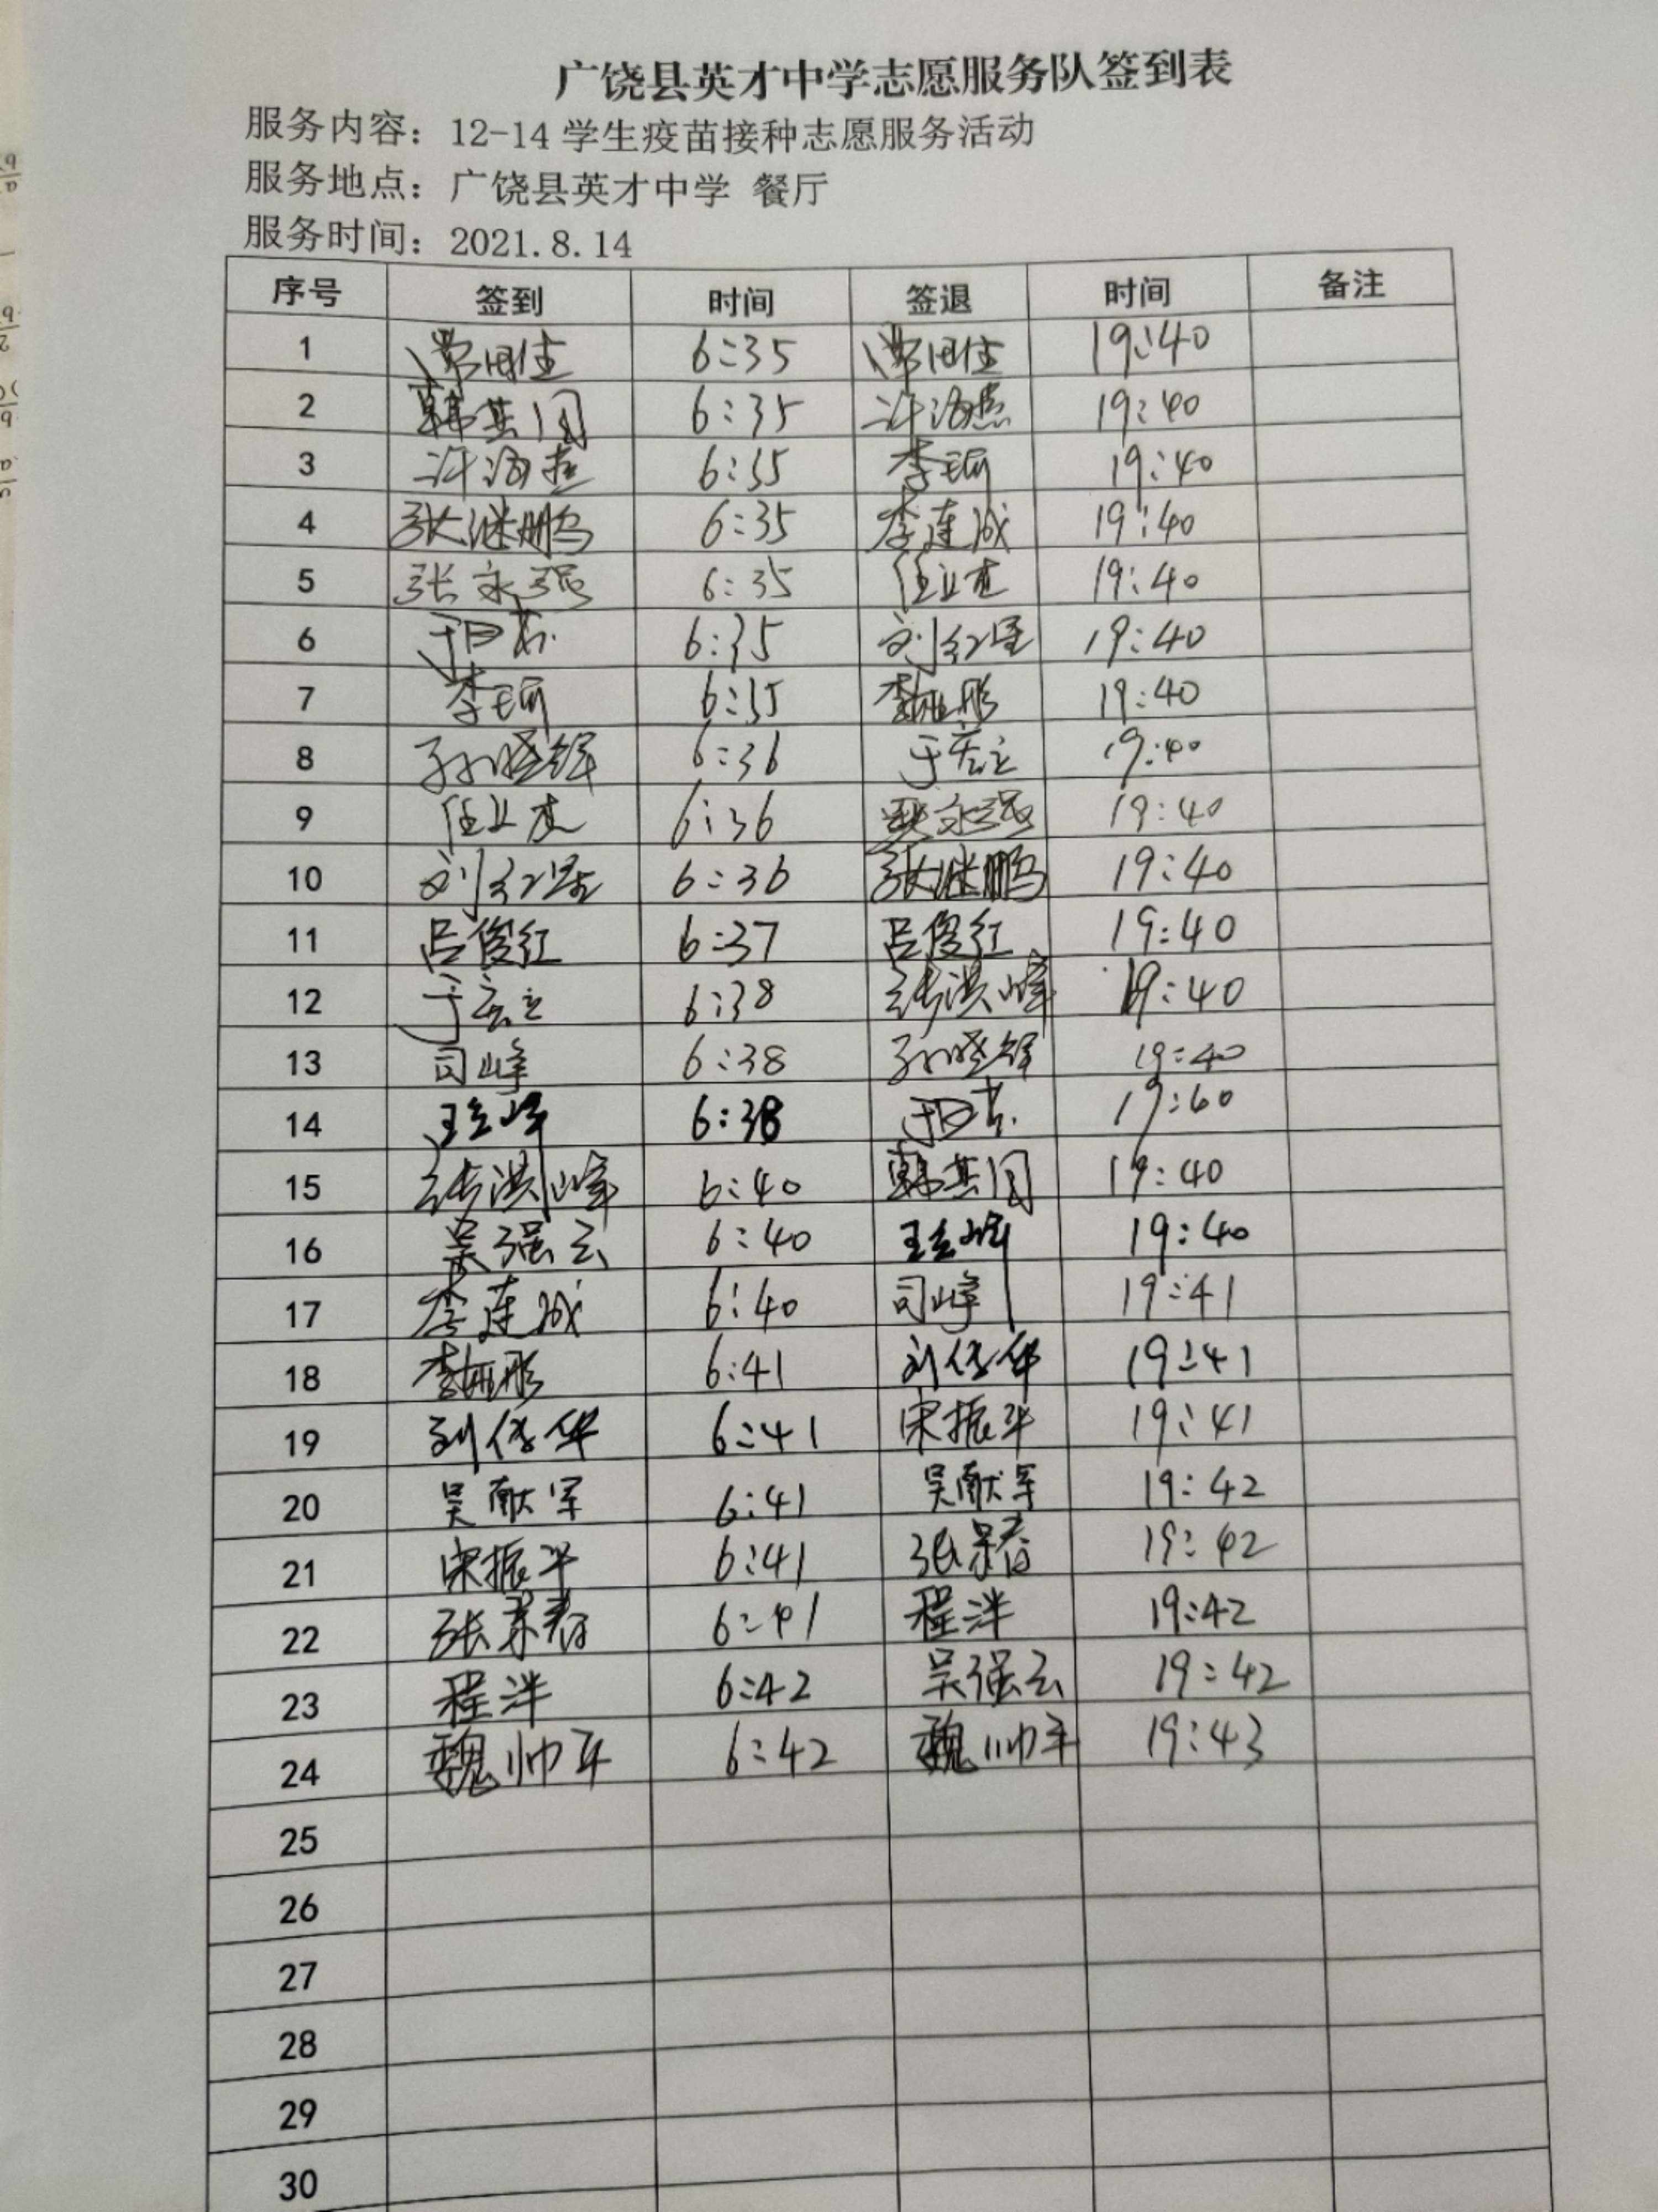 广饶县英才中学志愿服务队签到表
服务内容：12-14 学生疫苗接种志愿服务活动
服务地点：广饶县英才中学 餐厅
服务时间：2021.8.14
序号 签到 时间 签退 时间 备注
1 6:35 19:40
2 6:35 许海燕 19:40
3 许海燕 6:35 李丽 19:40
4 张继鹏 6:35 李连成 19:40
5 张永强 6:35 任立杰 19:40
6 6:35 刘红星 19:40
7 李丽 6:35 19:40
8 孙晓辉 6:36 于宏立 19:40
9 任立杰 6:36 永强 19:40
10 刘红星 6:36 张继鹏 19:40
11 吕俊红 6:37 吕俊红 19:40
12 于宏立 6:38 张洪峰 19:40
13 司峰 6:38 孙晓辉 19:40
14 6:38 19:60
15 张洪峰 6:40 19:40
16 吴强云 6:40 19:40
17 李连成 6:40 司峰 19:41
18 6:41 19:41
19 6:41 宋振华 19:41
20 吴献军 6:41 吴献军 19:42
21 宋振华 6:41 张景春 19:42
22 张景春 6:41 程洋 19:42
23 程洋 6:42 吴强云 19:42
24 魏帅军 6:42 魏帅军 19:43
25
26
27
28
29
30